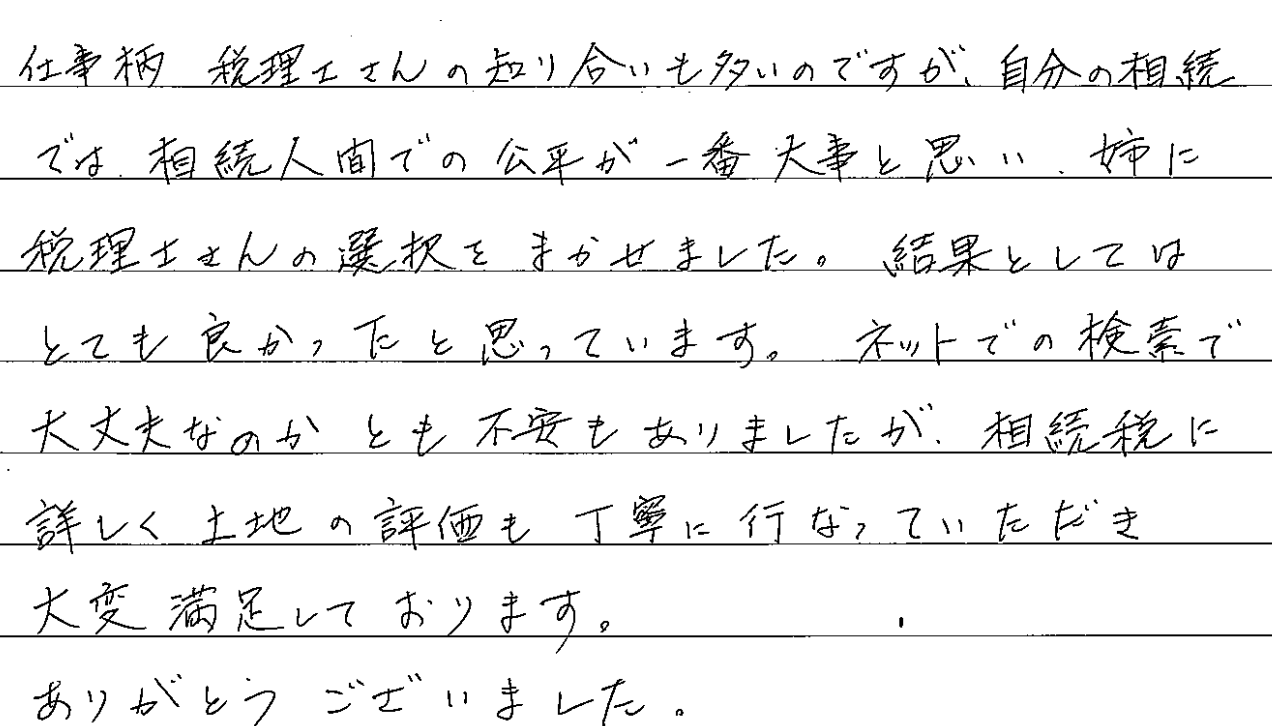 仕事柄 税理士さんの知り合いも多いのですが、自分の相続
では、相続人間での公平が一番大事と思い、姉に
税理士さんの選択をまかせました。 結果としては
とても良かったと思っています。 ネットでの検索で
大丈夫なのかとも不安もありましたが、相続税に
詳しく土地の評価も丁寧に行なっていただき
大変満足しております。
ありがとうございました。